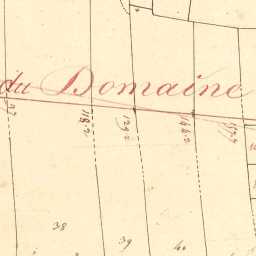 du Domaine
118.2
129.2
148.2
38
39
40